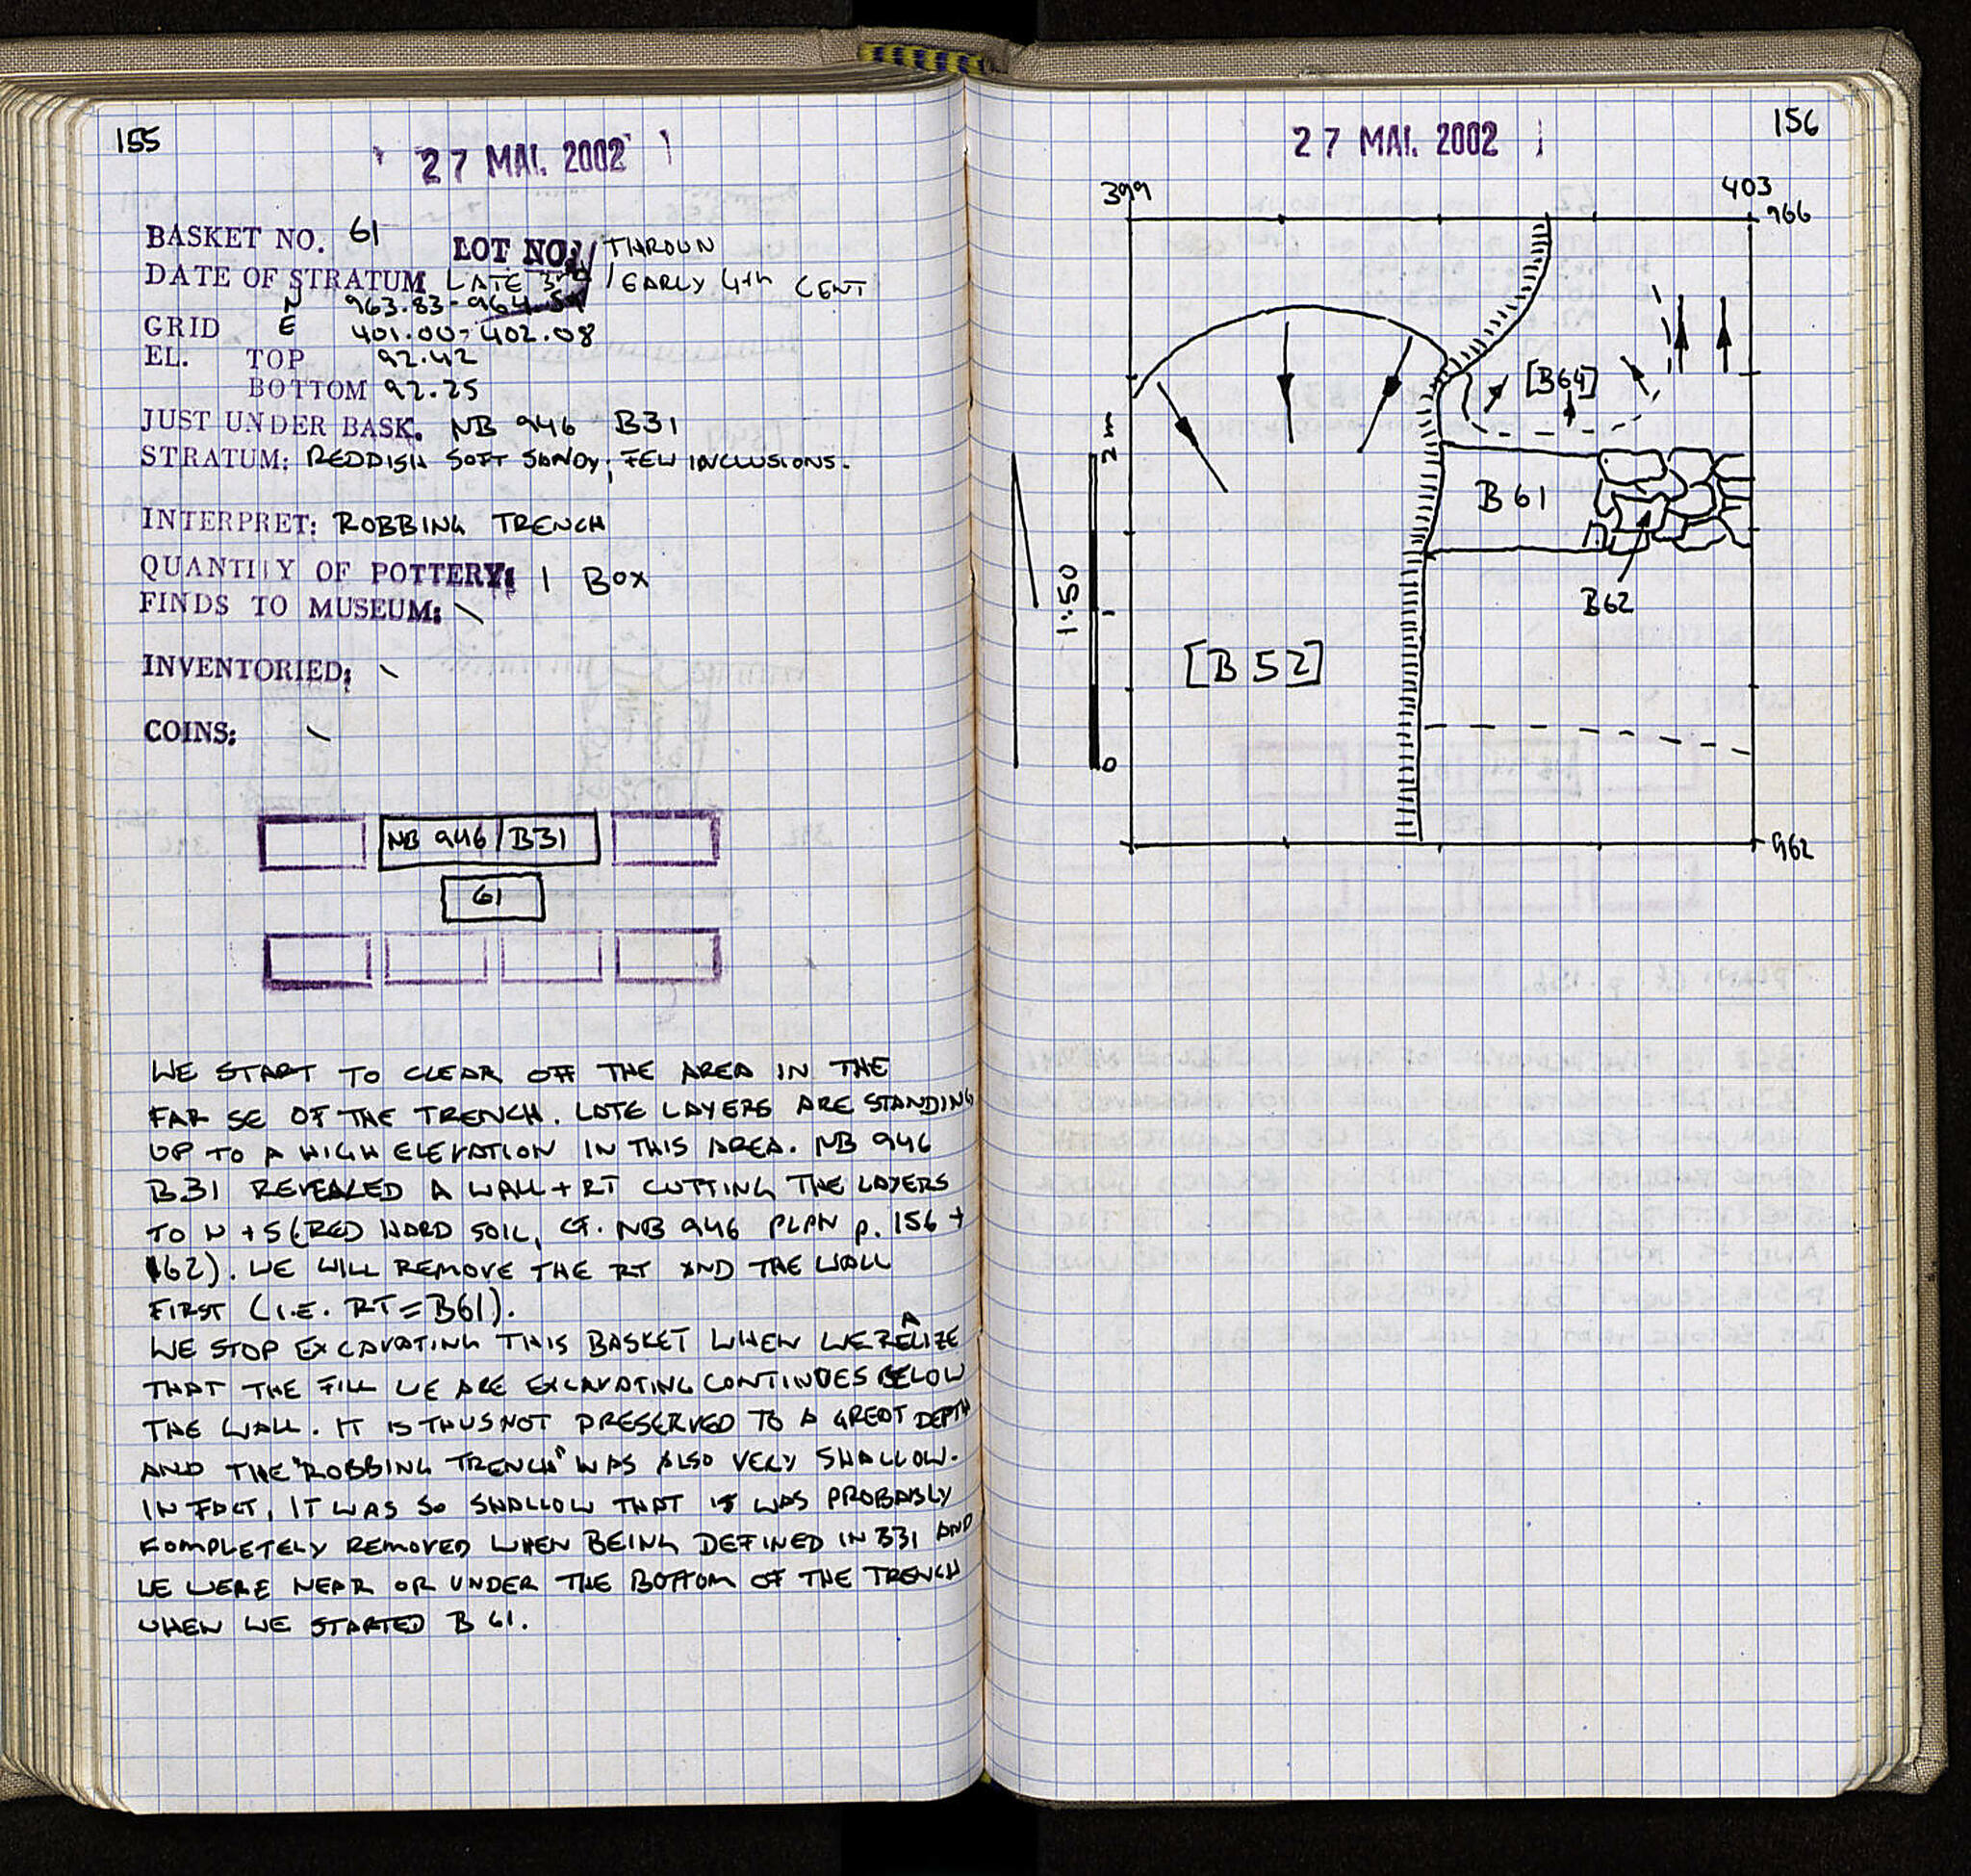 155
27 MAI. 2002
BASKET NO. 61 LOT NO. / THROWN
DATE OF STRATUM LATE 3rd / EARLY 4th CENT
N 963.83-964.51
GRID E 401.00-402.08
EL. TOP 92.42
BOTTOM 92.25
JUST UNDER BASK. NB 946 B31
STRATUM: REDDISH SOFT SANDY, FEW INCLUSIONS.
INTERPRET: ROBBING TRENCH
QUANTITY OF POTTERY: 1 BOX
FINDS TO MUSEUM: \
INVENTORIED: \
COINS: \
NB 946 / B31
61
WE START TO CLEAR OFF THE AREA IN THE
FAR SE OF THE TRENCH. LATE LAYERS ARE STANDING
UP TO A HIGH ELEVATION IN THIS AREA. NB 946
B31 REVEALED A WALL + RT CUTTING THE LAYERS
TO N + S (RED HARD SOIL, CF. NB 946 PLAN p. 156 +
162). WE WILL REMOVE THE RT AND THE WALL
FIRST (I.E. RT = B61).
WE STOP EXCAVATING THIS BASKET WHEN WE REALIZE
THAT THE FILL WE ARE EXCAVATING CONTINUES BELOW
THE WALL. IT IS THUS NOT PRESERVED TO A GREAT DEPTH
AND THE "ROBBING TRENCH" WAS ALSO VERY SHALLOW.
IN FACT, IT WAS SO SHALLOW THAT IT WAS PROBABLY
KOMPLETELY REMOVED WHEN BEING DEFINED IN B31 AND
WE WERE NEAR OR UNDER THE BOTTOM OF THE TRENCH
WHEN WE STARTED B 61.
156
27 MAI. 2002
399
403
966
[B64]
2m
B 61
1:50
1
B62
[B 52]
0
962